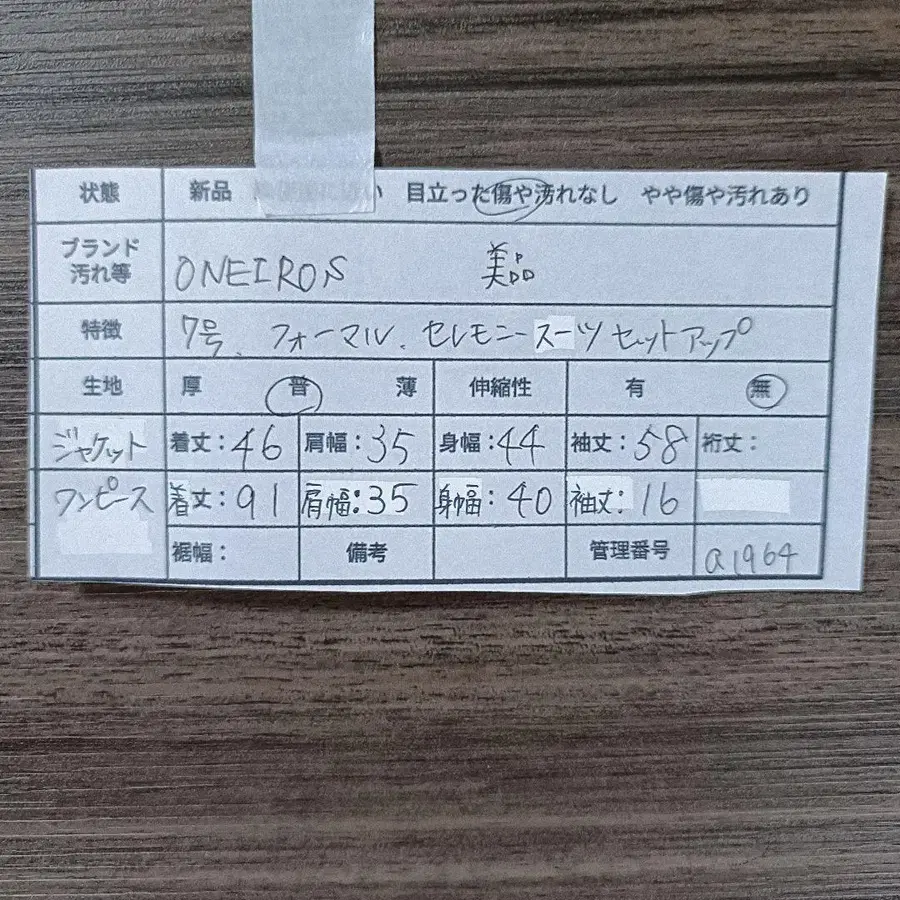 状態 新品 い 目立った傷や汚れなし やや傷や汚れあり
ブランド 汚れ等 ONEIROS 美品
特徴 7号、フォーマル、セレモニースーツセットアップ
生地 厚 普 薄 伸縮性 有 無
ジャケット 着丈:46 肩幅:35 身幅:44 袖丈:58 裄丈:
ワンピース 着丈:91 肩幅:35 身幅:40 袖丈:16
裾幅: 備考 管理番号 a1964